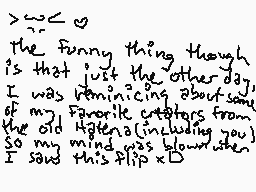 >ω< ♡
the funny thing though
is that just the other day,
I was reminicing about some
of my favorite creators from
the old Hatena (including you)
so my mind was blown when
I saw this flip xD